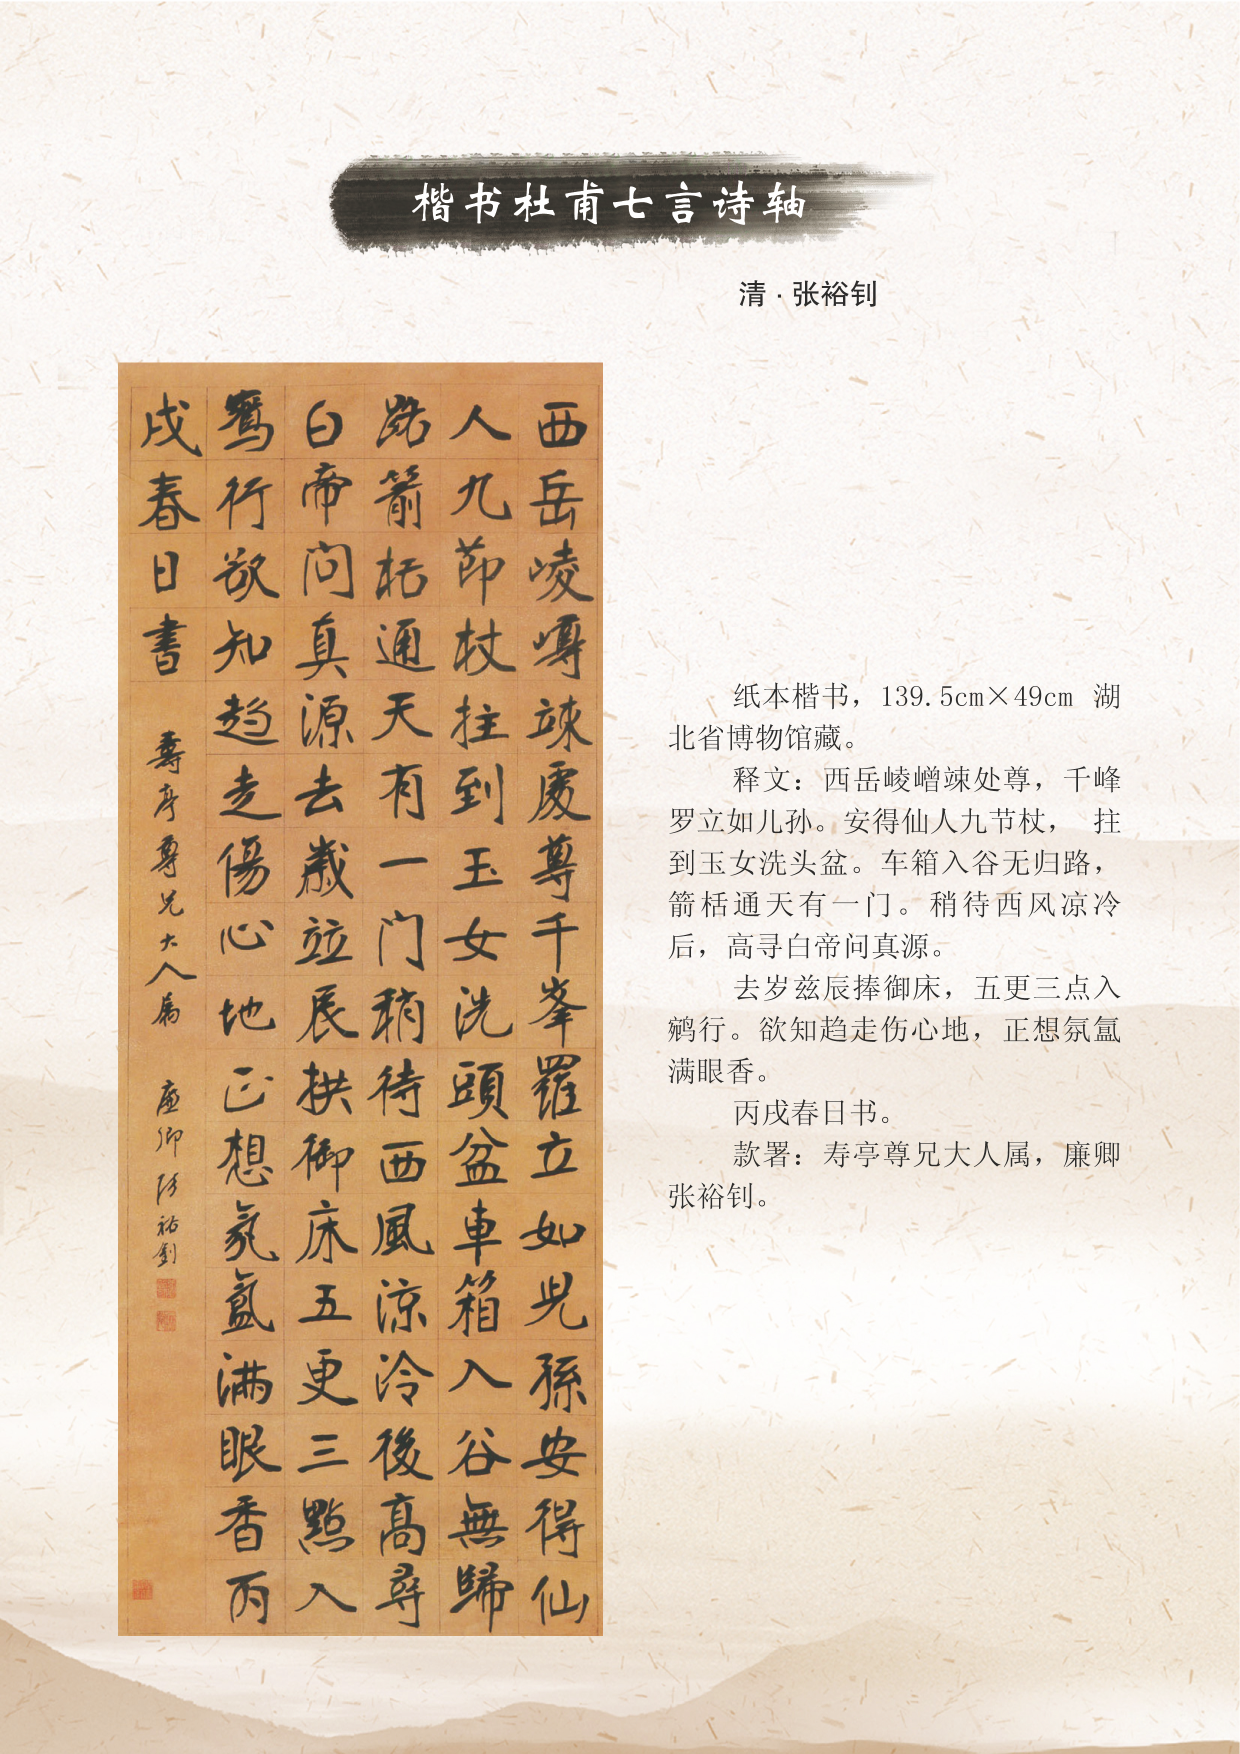 楷书杜甫七言诗轴
清·张裕钊
西岳崚嶒竦處尊千峯羅立如兒孫安得仙
人九節杖拄到玉女洗頭盆車箱入谷無歸
路箭栝通天有一门稍待西風涼冷後高尋
白帝问真源去歲玆辰捧御床五更三點入
鵷行欲知趋走傷心地正想氛氳满眼香丙
戌春日書
壽亭尊兄大人属
廉卿張裕釗
纸本楷书，139.5cm×49cm 湖
北省博物馆藏。
释文：西岳崚嶒竦处尊，千峰
罗立如儿孙。安得仙人九节杖， 拄
到玉女洗头盆。车箱入谷无归路，
箭栝通天有一门。稍待西风凉冷
后，高寻白帝问真源。
去岁兹辰捧御床，五更三点入
鹓行。欲知趋走伤心地，正想氛氲
满眼香。
丙戌春日书。
款署：寿亭尊兄大人属，廉卿
张裕钊。